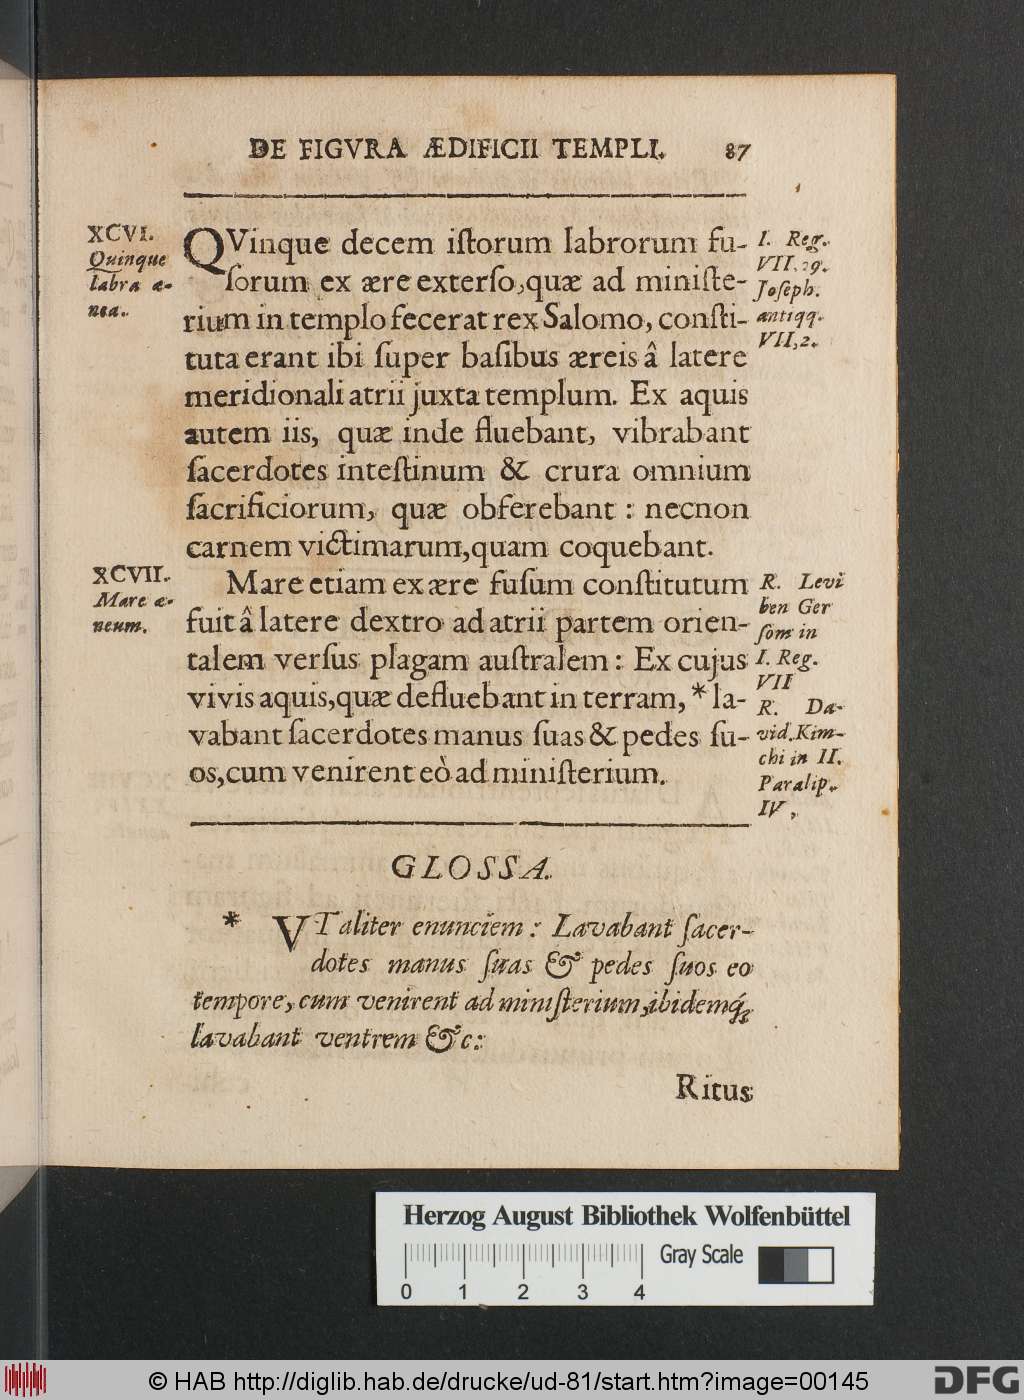 DE FIGVRA ÆDIFICII TEMPLI. 87
XCVI.
Quinque
labra æ-
nea.
QVinque decem iſtorum labrorum fu-
ſorum ex ære exterſo,quæ ad miniſte-
rium in templo fecerat rex Salomo, conſti-
tuta erant ibi ſuper baſibus æreis â latere
meridionali atrii juxta templum. Ex aquis
autem iis, quæ inde fluebant, vibrabant
ſacerdotes inteſtinum & crura omnium
ſacrificiorum, quæ obferebant : necnon
carnem victimarum,quam coquebant.
I. Reg.
VII.29.
Joſeph.
antiqq.
VII,2.
XCVII.
Mare æ-
neum.
Mare etiam ex ære fuſum conſtitutum
fuit â latere dextro ad atrii partem orien-
talem verſus plagam auſtralem : Ex cujus
vivis aquis,quæ defluebant in terram, * la-
vabant ſacerdotes manus ſuas & pedes ſu-
os,cum venirent eò ad miniſterium.
R. Levi
ben Ger
ſom in
I. Reg.
VII
R. Da-
vid.Kim-
chi in II.
Paralip.
IV,
GLOSSA.
* VTaliter enunciem : Lavabant ſacer-
dotes manus ſuas & pedes ſuos eo
tempore, cum venirent ad miniſterium,ibidemq́;
lavabant ventrem &c:
Ritus
Herzog August Bibliothek Wolfenbüttel
Gray Scale
0 1 2 3 4
© HAB http://diglib.hab.de/drucke/ud-81/start.htm?image=00145
DFG